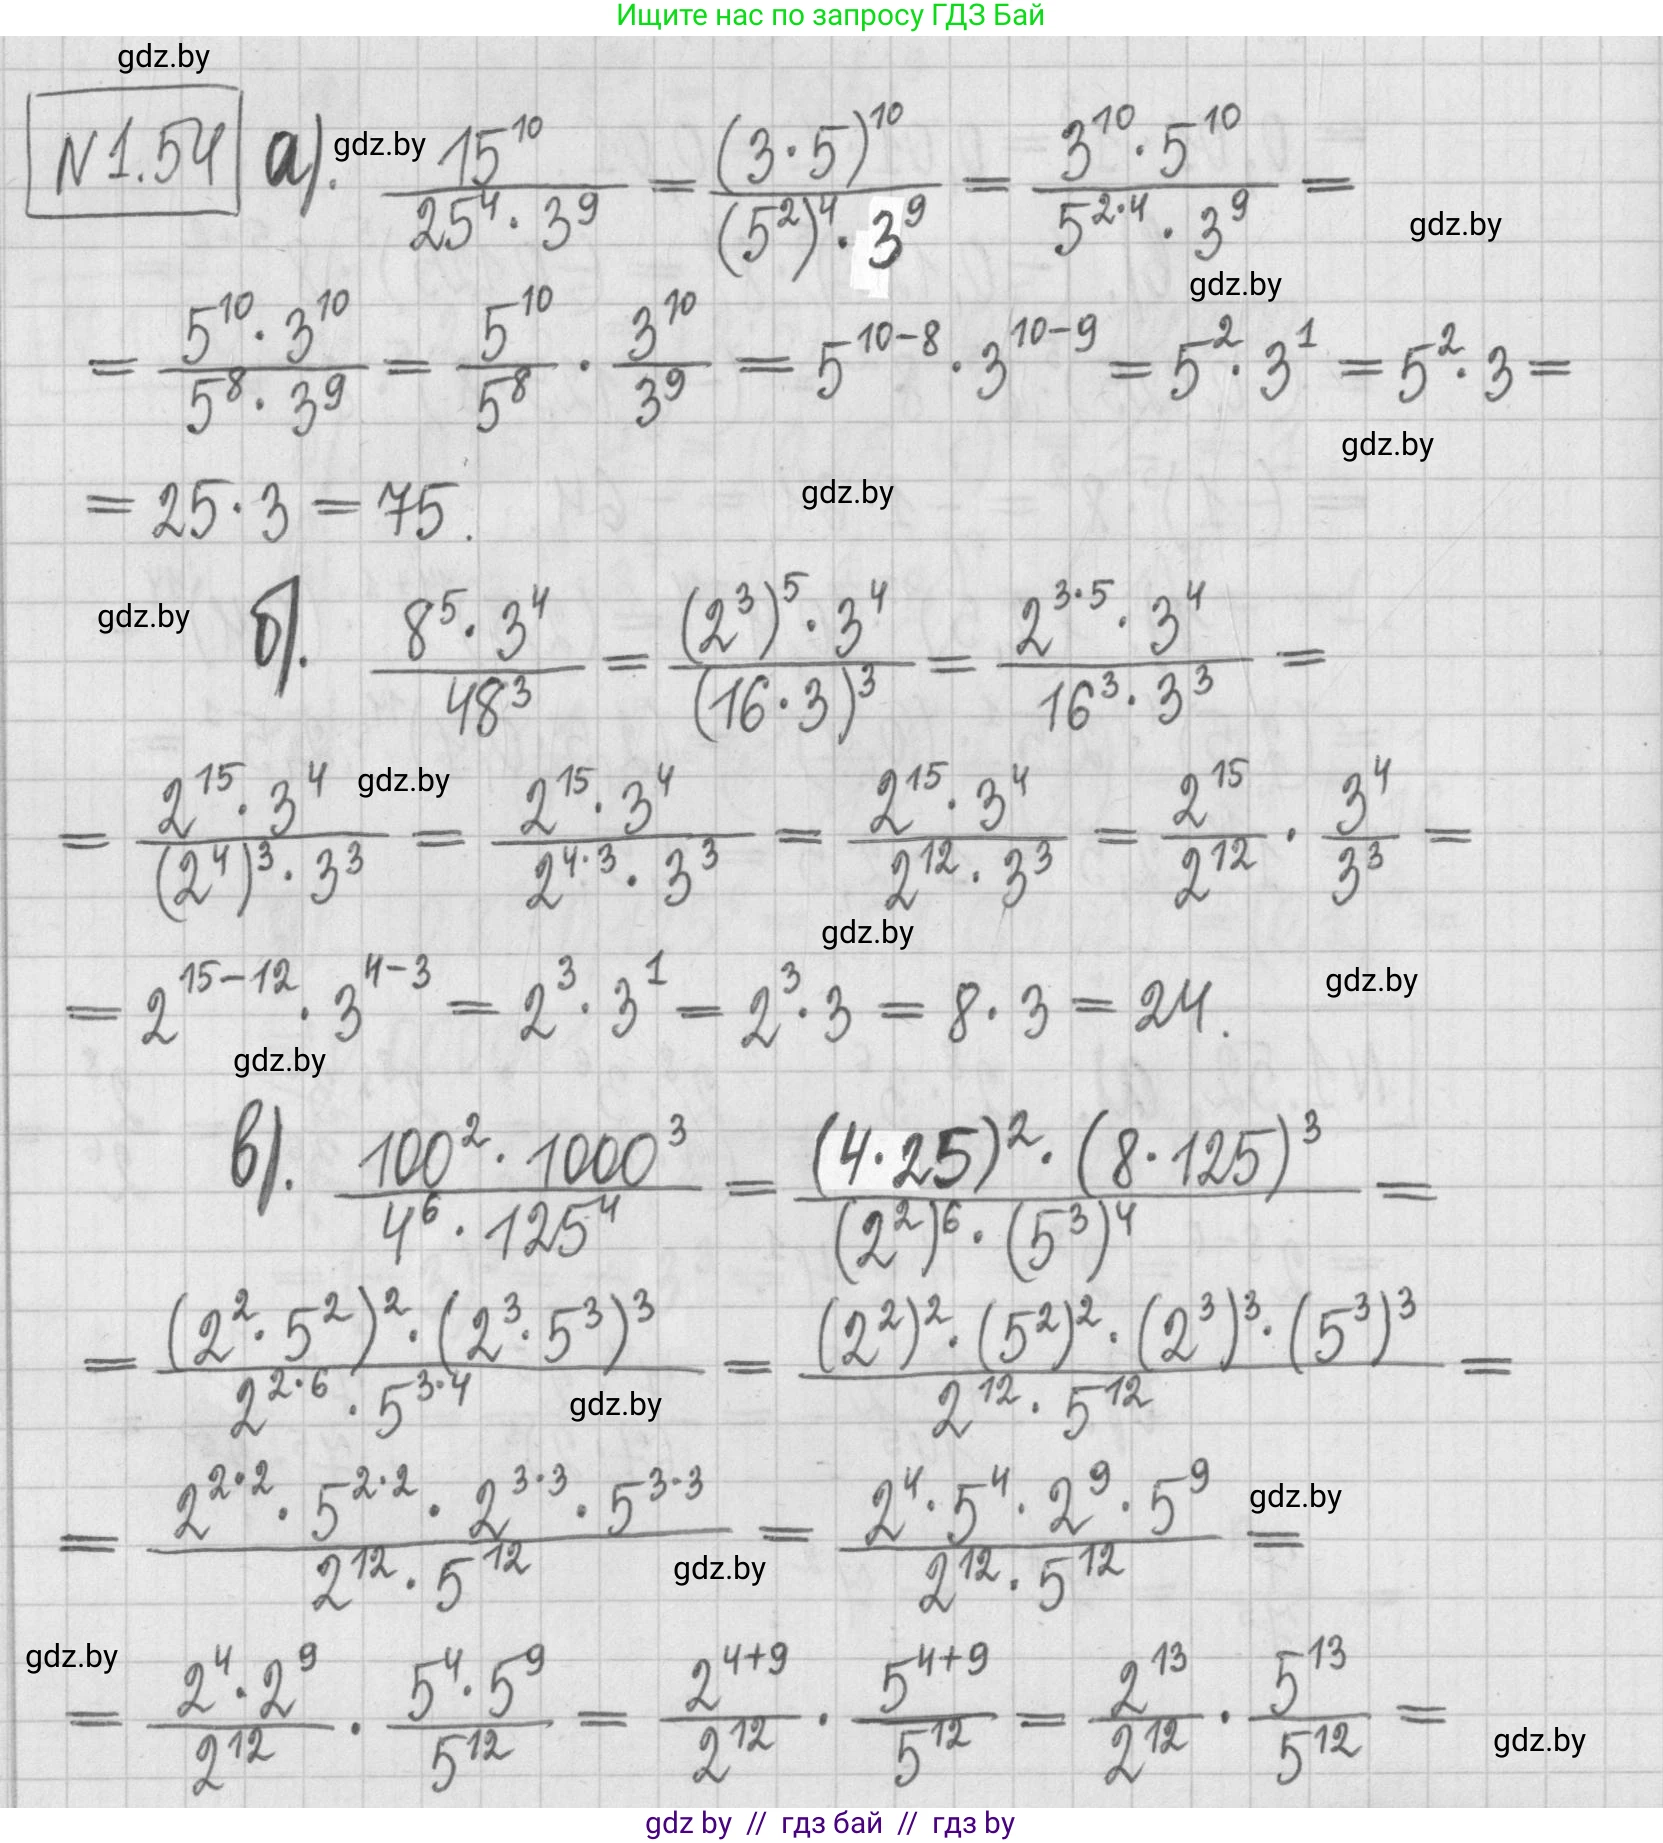 Ищите нас по запросу ГДЗ Бай
gdz.by
N1.54 а). gdz.by 15^10 / (25^4 · 3^9) = (3·5)^10 / ((5^2)^4 · 3^9) = 3^10 · 5^10 / (5^(2·4) · 3^9) =
gdz.by
gdz.by
= 5^10 · 3^10 / (5^8 · 3^9) = 5^10 / 5^8 · 3^10 / 3^9 = 5^(10-8) · 3^(10-9) = 5^2 · 3^1 = 5^2 · 3 =
gdz.by
= 25 · 3 = 75. gdz.by
gdz.by б). 8^5 · 3^4 / 48^3 = (2^3)^5 · 3^4 / (16·3)^3 = 2^(3·5) · 3^4 / (16^3 · 3^3) =
= 2^15 · 3^4 / ((2^4)^3 · 3^3) gdz.by = 2^15 · 3^4 / (2^(4·3) · 3^3) = 2^15 · 3^4 / (2^12 · 3^3) = 2^15 / 2^12 · 3^4 / 3^3 =
gdz.by
gdz.by
= 2^(15-12) · 3^(4-3) = 2^3 · 3^1 = 2^3 · 3 = 8 · 3 = 24.
gdz.by
в). 100^2 · 1000^3 / (4^6 · 125^4) = (4·25)^2 · (8·125)^3 / ((2^2)^6 · (5^3)^4) =
= (2^2 · 5^2)^2 · (2^3 · 5^3)^3 / (2^(2·6) · 5^(3·4)) = (2^2)^2 · (5^2)^2 · (2^3)^3 · (5^3)^3 / (2^12 · 5^12) =
gdz.by
= 2^(2·2) · 5^(2·2) · 2^(3·3) · 5^(3·3) / (2^12 · 5^12) = 2^4 · 5^4 · 2^9 · 5^9 / (2^12 · 5^12) =
gdz.by
gdz.by
gdz.by
= 2^4 · 2^9 / 2^12 · 5^4 · 5^9 / 5^12 = 2^(4+9) / 2^12 · 5^(4+9) / 5^12 = 2^13 / 2^12 · 5^13 / 5^12 =
gdz.by
gdz by // гдз бай // гдз by